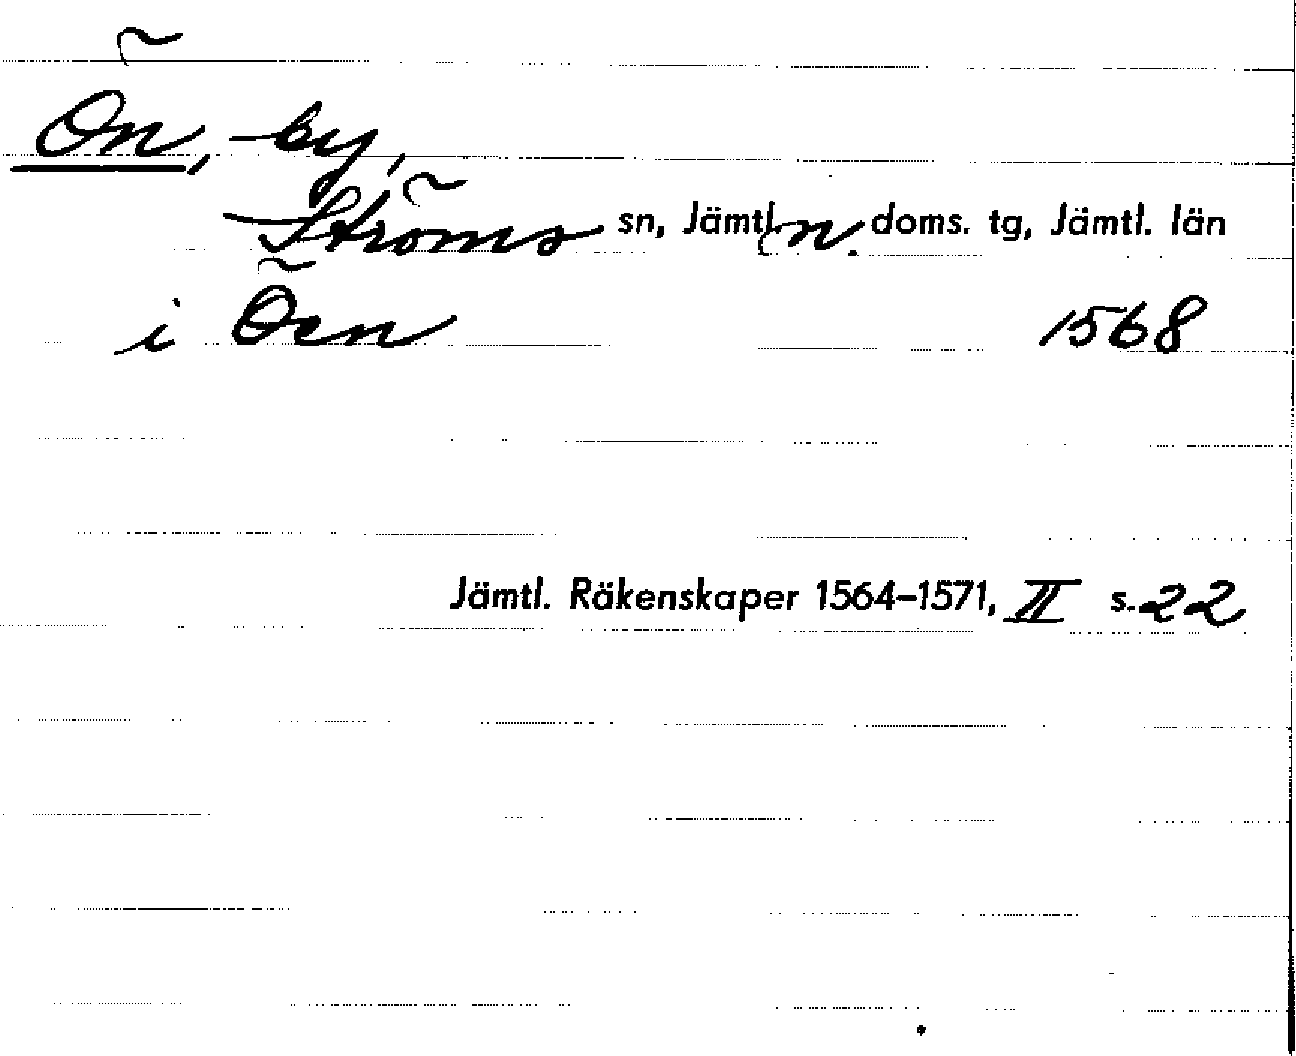 Ön, by,
Ströms sn, Jämtl. n. doms. tg, Jämtl. län
i Öen 1568
Jämtl. Räkenskaper 1564–1571, II s. 22